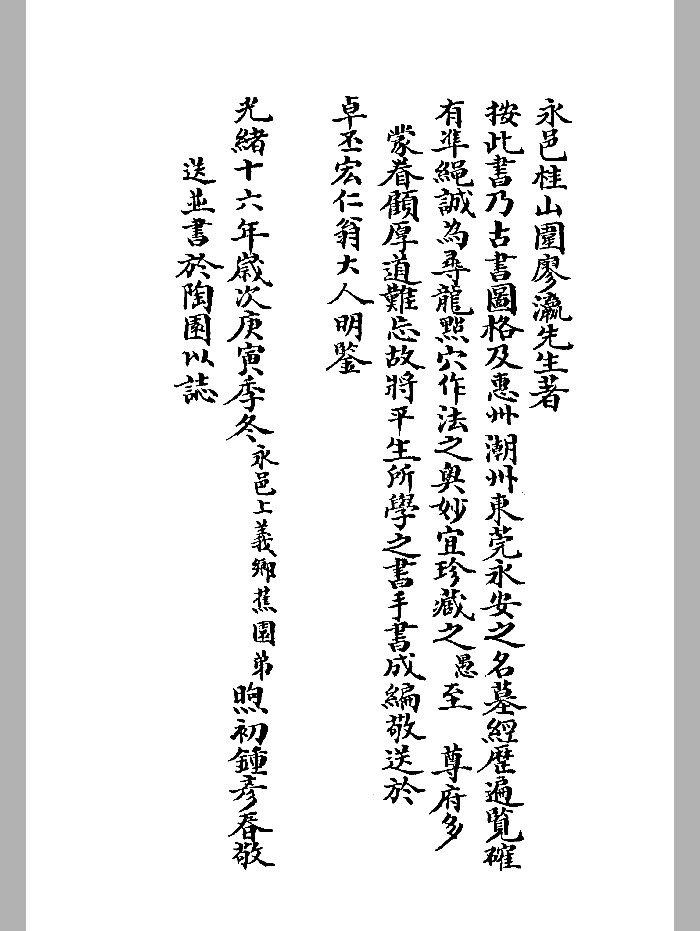 永邑桂山圍廖瀛先生著
按此書乃古書圖格及惠州潮州東莞永安之名墓經歷遍覽確
有準繩誠為尋龍點穴作法之奧妙宜珍藏之愚至 尊府多
蒙眷顧厚道難忘故將平生所學之書手書成編敬送於
卓丕宏仁翁大人明鑒
光緒十六年歲次庚寅季冬永邑上義鄉蕉園弟煦初鍾彥春敬
送並書於陶園以誌